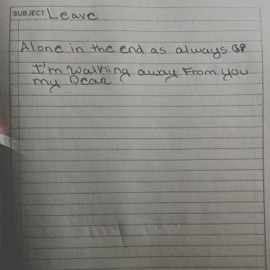 SUBJECT: Leave
Alone in the end as always
I'm walking away From you
my Dear